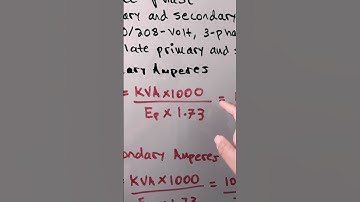 ary and secondary
0/208-Volt, 3-pha
late primary and s
ary Amperes
= KVA x 1000 =
Ep x 1.73
ondary Amperes
= KVA x 1000 = 10
x 1.73